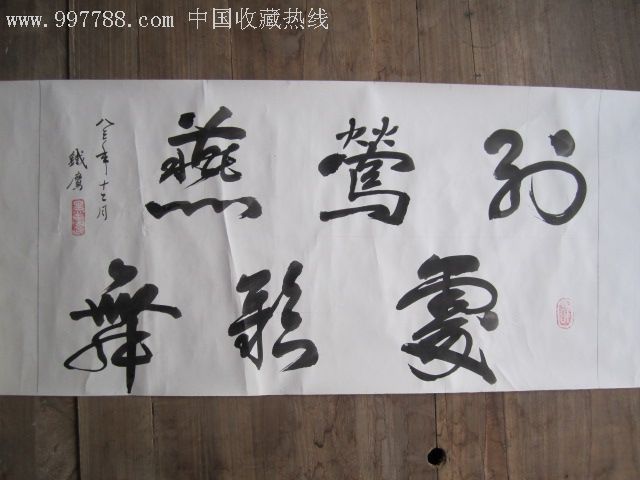 www.997788.com 中国收藏热线
到處
鶯歌
燕舞
八三年十二月
鐵鷹